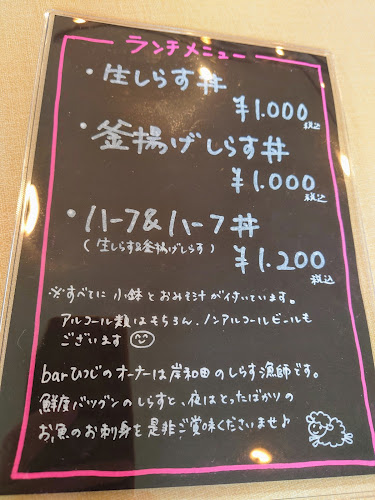 ランチメニュー
・生しらす丼
¥1.000
税込
・釜揚げしらす丼
¥1.000
税込
・ハーフ&ハーフ丼
(生しらす&釜揚げしらす)
¥1.200
税込
※すべてに小鉢とおみそ汁が付いています。
アルコール類はもちろん、ノンアルコールビールも
ございます
barひつじのオーナーは岸和田のしらす漁師です。
鮮度バツグンのしらすと、夜はとったばかりの
お魚のお刺身を是非ご賞味くださいませ♪